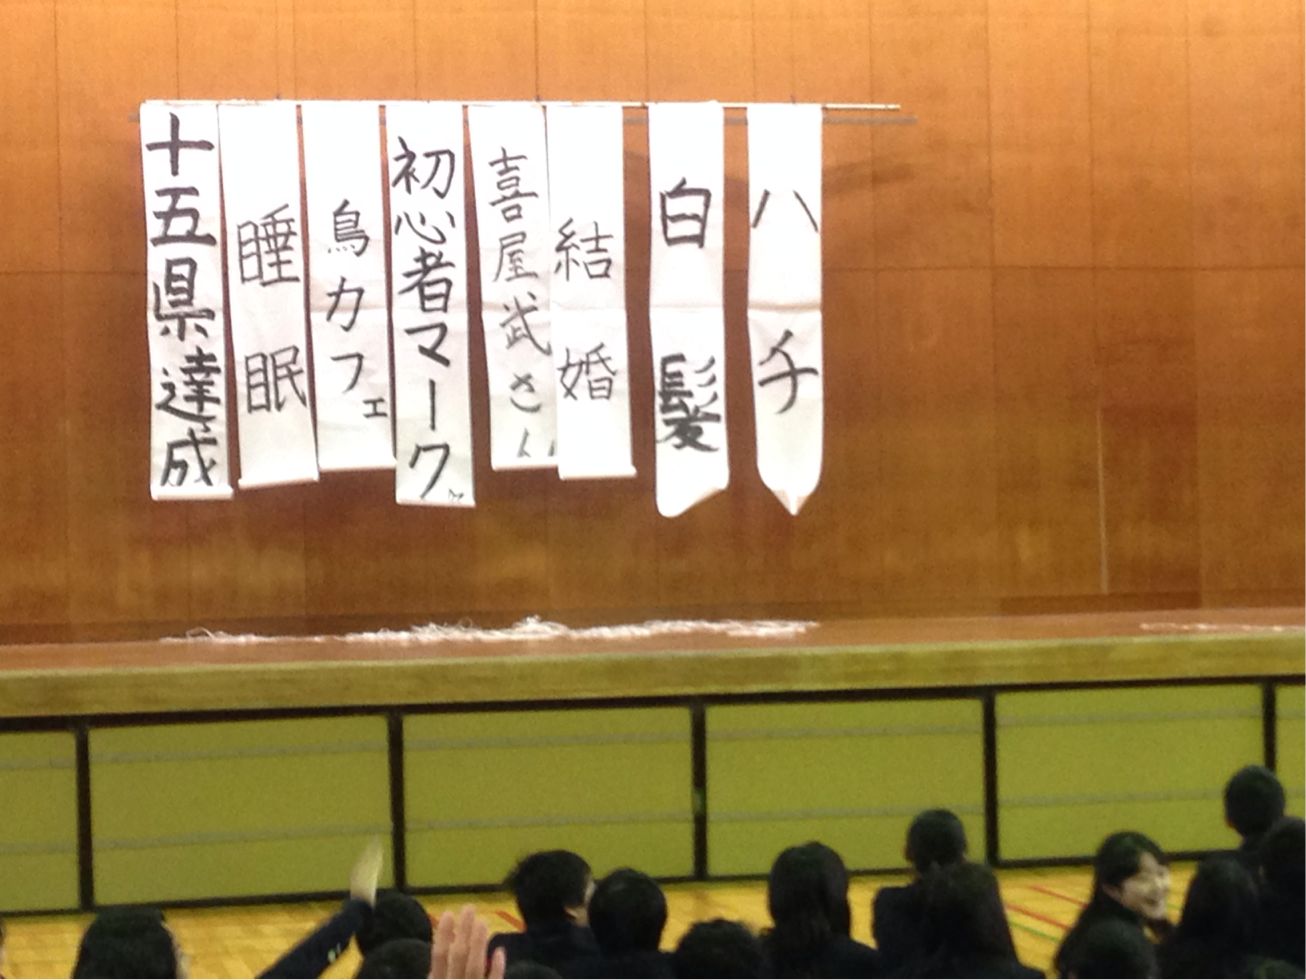 ハチ
白髪
結婚
喜屋武さん
初心者マーク
鳥カフェ
睡眠
十五県達成